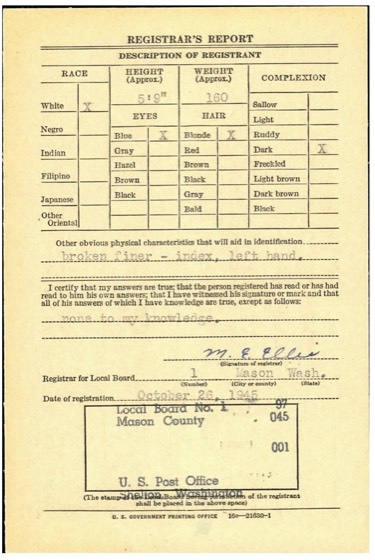 REGISTRAR'S REPORT
DESCRIPTION OF REGISTRANT
RACE
HEIGHT (Approx.)
WEIGHT (Approx.)
COMPLEXION
5'9"
160
White X
Negro
Indian
Filipino
Japanese
Other Oriental
EYES
Blue X
Gray
Hazel
Brown
Black
HAIR
Blonde X
Red
Brown
Black
Gray
Bald
Sallow
Light
Ruddy
Dark X
Freckled
Light brown
Dark brown
Black
Other obvious physical characteristics that will aid in identification
broken finer - index, left hand.
I certify that my answers are true; that the person registered has read or has had
read to him his own answers; that I have witnessed his signature or mark and that
all of his answers of which I have knowledge are true, except as follows:
none to my knowledge.
M. E. Ellis
(Signature of registrar)
Registrar for Local Board 1 Mason Wash.
(Number) (City or county) (State)
Date of registration October 26, 1945
Local Board No. 1 97
Mason County 045
001
U. S. Post Office
Shelton, Washington
(The stamp of the Local Board having jurisdiction of the registrant
shall be placed in the above space)
U. S. GOVERNMENT PRINTING OFFICE 16—21630-1